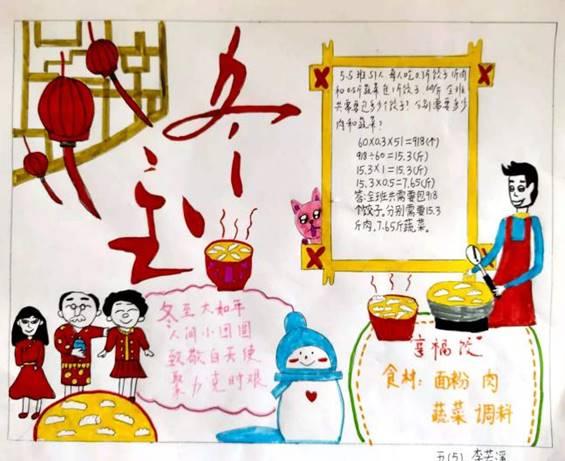 冬至
5.5班51人, 每人吃0.3斤饺子, 1斤肉
和0.5斤蔬菜包1斤饺子, 60个/斤, 全班
共需要包多少个饺子? 分别需要多少
肉和蔬菜?
60×0.3×51=918(个)
918÷60=15.3(斤)
15.3×1=15.3(斤)
15.3×0.5=7.65(斤)
答:全班共需要包918
个饺子,分别需要15.3
斤肉,7.65斤蔬菜。
冬至大如年
人间小团圆
致敬白天使
聚力克时艰
幸福饺
食材: 面粉 肉
蔬菜 调料
五(5) 李芸溪